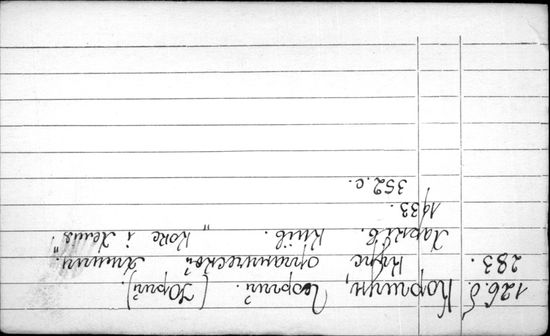 126.δ Коршун, Георгий. (Юрий).
283. Курс органической химии.
Харків. Київ. „Кокс і Хемія".
1933.
352.с.